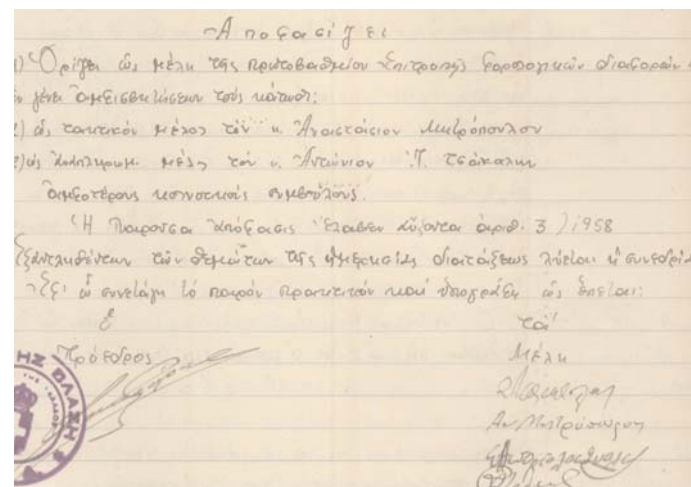 Ἀποφασίζει
1) Ὁρίζει ὡς μέλη τῆς πρωτοβαθμίου Ἐπιτροπῆς φορολογικῶν διαφορῶν
ἐν γένει ἀμφισβητήσεων τούς κάτωθι:
1) ὡς τακτικόν μέλος τόν κ. Ἀναστάσιον Μητρόπουλον
2) ὡς ἀναπληρωμ. μέλος τόν κ. Ἀντώνιον Τσάκαλην
ἀμφοτέρους κοινοτικούς συμβούλους.
Ἡ Παροῦσα ἀπόφασις Ἔλαβεν αὔξοντα ἀριθ. 3)1958
Ἐξαντληθέντων τῶν θεμάτων τῆς ἡμερησίας διατάξεως λύεται ἡ συνεδρία
Ἐξ' οὗ συνετάγη τό παρόν πρακτικόν καί ὑπογράφεται ὡς ἕπεται:
Ὁ τά
Πρόεδρος Μέλη
Αν Μητρόπουλος
ΗΣ ΒΛΑΣΗ